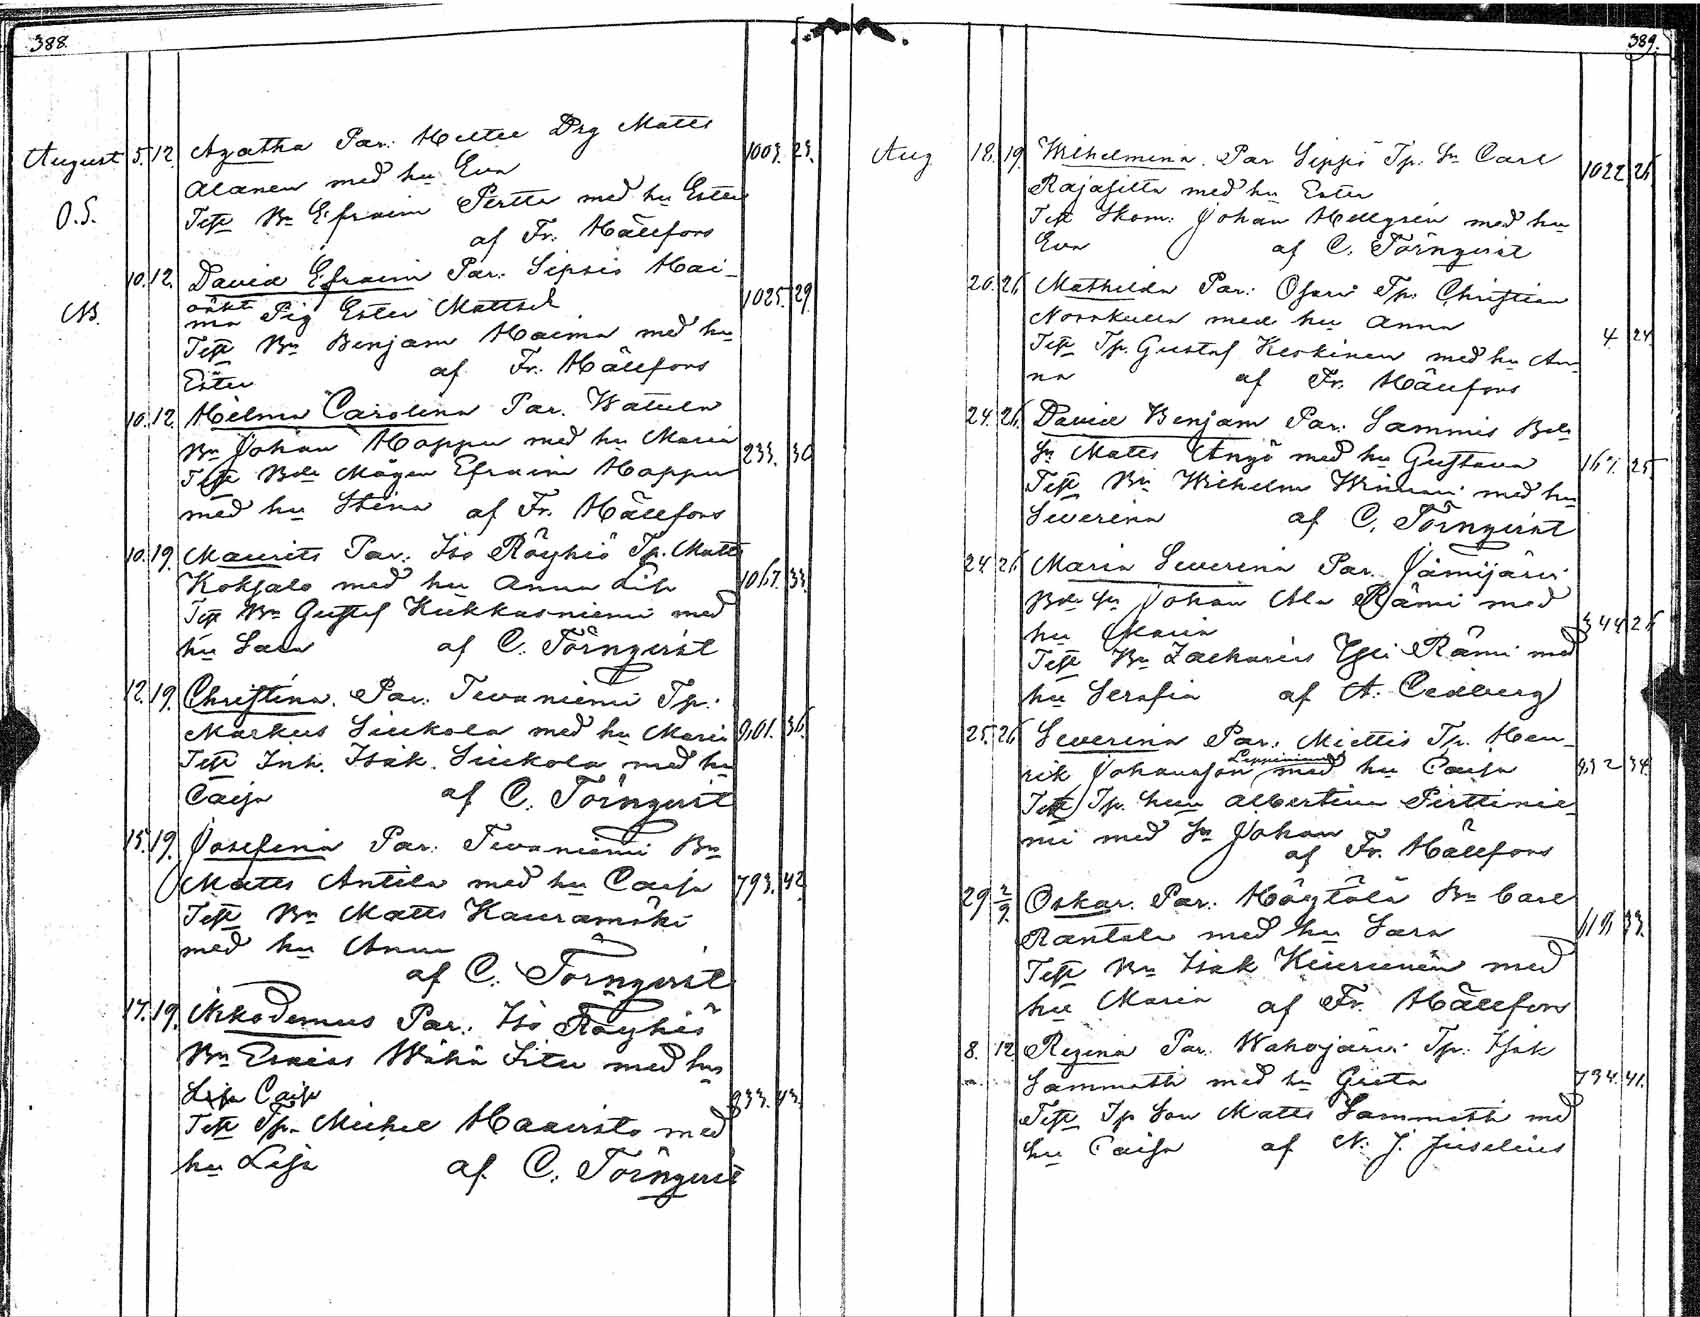 388.
August 5. 12. Agatha Par: Mettee Drg Matts 1003. 23.
Alanen med hu Eva
O.S. Test Bn Efraim Pertte med hu Ester
af Fr. Hällfors
10. 12. David Efraim Par: Sipsis Hai- 1025. 29.
oäkt
ma Pig Ester Mattsd
N. Test Bn Benjam Haima med hu
Ester af Fr. Hällfors
10. 12. Hilma Carolina Par. Watula
Bn Johan Hoppu med hu Maria 233. 30
Test Bde Mågen Efraim Hoppu
med hu Stina af Fr. Hällfors
10. 19. Maurits Par: Iso Röyhiö Tp. Matts
Koksalo med hu Anna Lisa 1067. 33.
Test Bn Gustaf Kiekkasniemi med
hu Sara af C. Törnqvist
12. 19. Christina. Par: Tevaniemi Tp:
Markus Siukola med hu Maria 901. 36.
Test Inh. Isak. Siukola med hu
Caisa af C. Törnqvist
15. 19. Josefina Par: Tevaniemi Bn
Matts Antila med hu Caisa 793. 42
Test Bn Matts Kauramäki
med hu Anna
af C. Törnqvist
17. 19. Nikodemus Par: Iso Röyhiö
Bn Esaias Wähä Situ med hu
Lisa Caisa 933. 43.
Test Tp. Michel Haavisto med
hu Lisa af. C. Törnqvist
389.
Aug 18. 19. Wilhelmina. Par Sippo Tp: Sn Carl 1022. 26.
Rajasilta med hu Ester
Test Skom: Johan Hellgrén med hu
Eva af C. Törnqvist
20. 26. Mathilda Par: Osara Tp: Christian
Norrkulla med hu Anna 4 24.
Test Tp. Gustaf Keskinen med hu An-
na af Fr. Hällfors
24. 26. David Benjam Par: Sammis Bde
Sn Matts Anyö med hu Gustava 167. 25.
Test Bn Wilhelm Winnari med hu
Severina af C. Törnqvist
24. 26 Maria Severina Par. Jämijärvi
Bde Sn Johan Ala Rämi med
hu Maria 344 26
Test Bn Zacharias Yli Rämi med
hu Serafia af A. Cedberg
25. 26 Severina Par: Miettis Tp. Hen-
Leppiniemi
rik Johansson med hu Caisa 932 34.
Test Tp. hu Albertina Pirttinie
mi med Sn Johan
af Fr. Hällfors
29 2/9. Oskar. Par: Höytölä Bn Carl
Rantala med hu Sara 33.
Test Bn Isak Keierinen med
hu Maria af Fr. Hällfors
8. 12 Regina Par: Wahojärvi Tp: Isak
Sammatti med hu Greta 734. 41.
Test Tp Son Matts Sammatti med
hu Caisa af N. J. Juselius